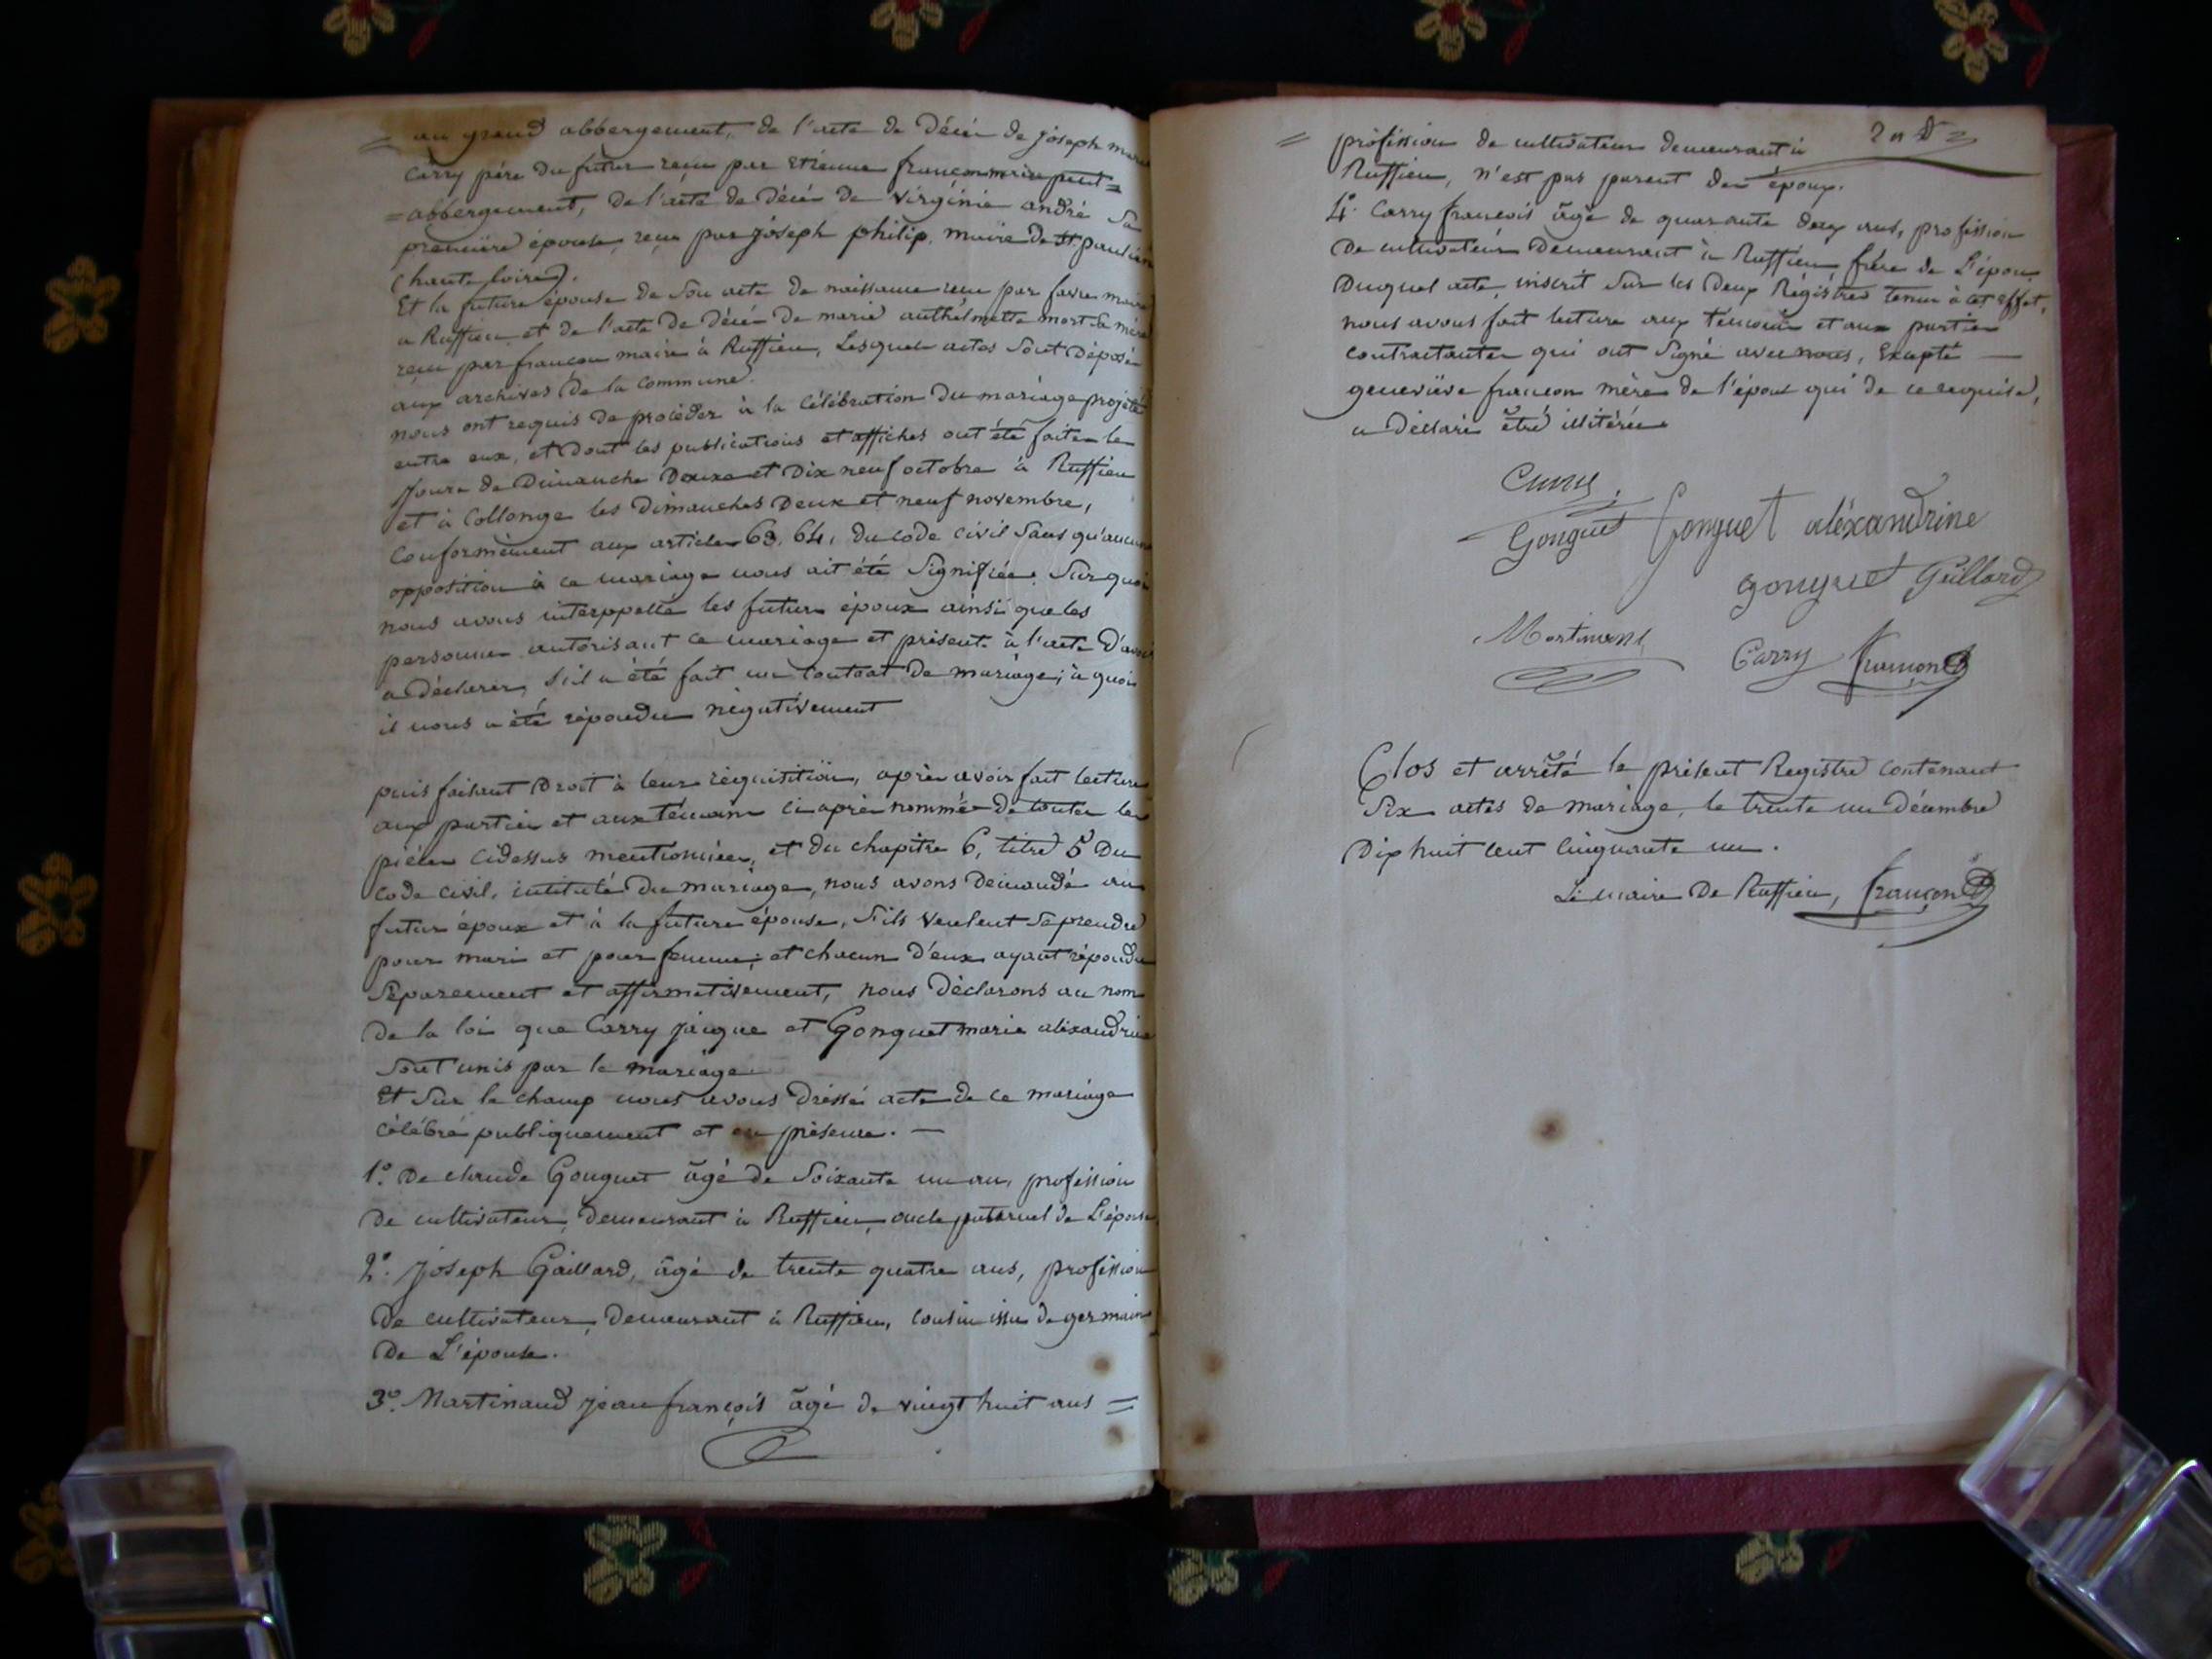 = au grand abbergement, de l'acte de décès de joseph marie
Carry père du futur reçu par Etienne françon maire petit =
= abbergement, de l'acte de décès de virginie andré Sa
première épouse, reçu par joseph philip, maire de St paulien
(haute loire).
Et la future épouse de Son acte de naissance reçu par favre maire
a Ruffieu et de l'acte de décès de marie anthelmette mort Sa mère
reçu par françon maire à Ruffieu, Lesquels actes Sont déposés
aux archives de la Commune.
nous ont requis de procéder à la célébration du mariage projeté
entre eux, et dont les publications et affiches ont été faites les
Jours de Dimanche Douze et Dix neuf octobre à Ruffieu
et à Collonge les Dimanches Deux et neuf novembre,
Conformément aux articles 63, 64, du Code civil Sans qu'aucune
opposition à ce mariage nous ait été Signifiée. Sur quoi
nous avons interppellé les futurs époux ainsi que les
personnes autorisant ce mariage et présents à l'acte d'avoir
a déclarer, S'il a été fait un Contrat de mariage; à quoi
il nous a été répondu négativement
puis faisant Droit à leur réquisition, après avoir fait lecture
aux parties et aux témoins ci après nommés de toutes les
pièces cidessus mentionnées, et du chapitre 6, titre 5 Du
Code civil, intitulé Du mariage, nous avons demandé au
futur époux et à la future épouse, S'ils veulent Se prendre
pour mari et pour femme; et chacun d'eux ayant répondu
Séparement et affirmativement, nous déclarons au nom
de la loi que Carry jacque et Gonguet marie aléxandrine
Sont unis par le mariage.
Et Sur le champ nous avons dréssé acte de ce mariage
célébré publiquement et en présence. —
1º. De claude Gonguet âgé de Soixante un ans, profession
de cultivateur, demeurant à Ruffieu, oncle paternel de L'épouse
2º. Joseph Gaillard, âgé de trente quatre ans, profession
de cultivateur, demeurant à Ruffieu, cousin issu de germain
De L'épouse.
3º. Martinaud jean françois âgé de vingt huit ans =
= profession de cultivateur demeurant à
Ruffieu, n'est pas parent des époux.
4º. Carry françois âgé de quarante deux ans, profession
De cultivateur Demeurant à Ruffieu frère de L'époux
Duquel acte, inscrit Sur les Deux Régistres tenus à cet effet,
nous avons fait lecture aux témoins et aux parties
contractantes qui ont Signé avec nous, Excepté —
geneviève françon mère de l'époux qui de ce requise,
a déclaré être illitérée
Gonguet Gonguet aléxandrine
gonguet Gillard
Martinand
Carry françon
Clos et arrêté le présent Registre contenant
Six actes de mariage, le trente un Décembre
Dix huit cent cinquante un.
Le maire De Ruffieu, françon